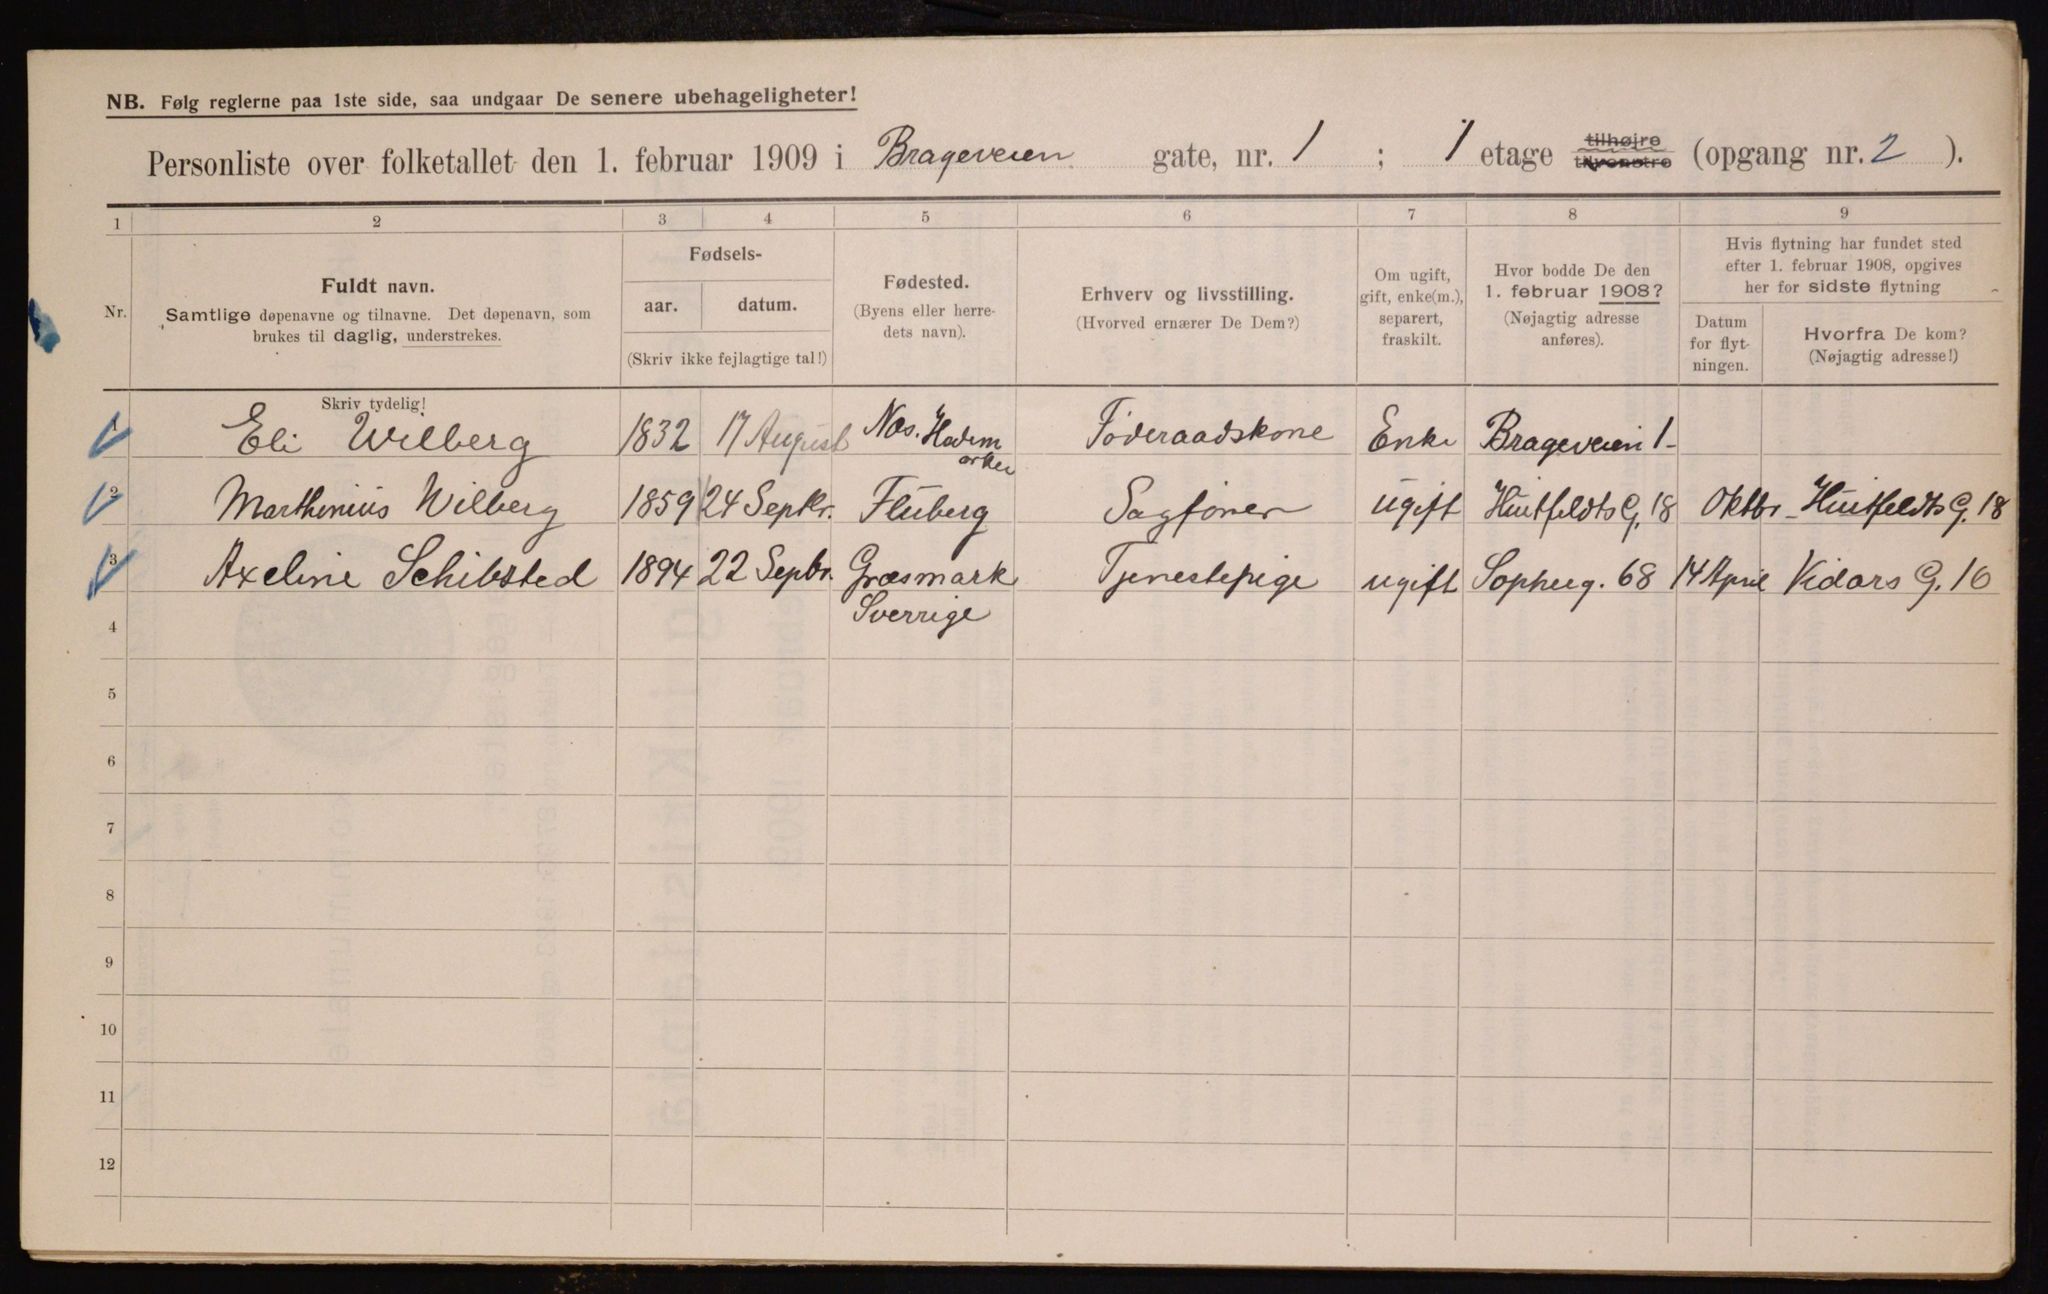 NB. Følg reglerne paa 1ste side, saa undgaar De senere ubehageligheter!
Personliste over folketallet den 1. februar 1909 i Brageveien gate, nr. 1 ; 1 etage tilhøjre tilvenstre (opgang nr. 2 ).
1 2 3 4 5 6 7 8 9
Nr.
Fuldt navn.
Samtlige døpenavne og tilnavne. Det døpenavn, som
brukes til daglig, understrekes.
Skriv tydelig!
Fødsels-
aar. datum.
(Skriv ikke fejlagtige tal!)
Fødested.
(Byens eller herre-
dets navn).
Erhverv og livsstilling.
(Hvorved ernærer De Dem?)
Om ugift,
gift, enke(m.),
separert,
fraskilt.
Hvor bodde De den
1. februar 1908?
(Nøjagtig adresse
anføres).
Hvis flytning har fundet sted
efter 1. februar 1908, opgives
her for sidste flytning
Datum
for flyt-
ningen.
Hvorfra De kom?
(Nøjagtig adresse!)
1 Eli Wilberg 1832 17 August Næs. Hedem Føderaadskone Enke Brageveien 1
arken
2 Marthinius Wilberg 1859 24 Septbr. Fluberg ugift Huitfeldts G. 18 Oktbr Huitfeldts G. 18
3 Axeline Schibsted 1894 22 Sepbr. Græsmark Tjenestepige ugift Sophieg. 68 14 April Vidars G. 16
Sverrige
4
5
6
7
8
9
10
11
12